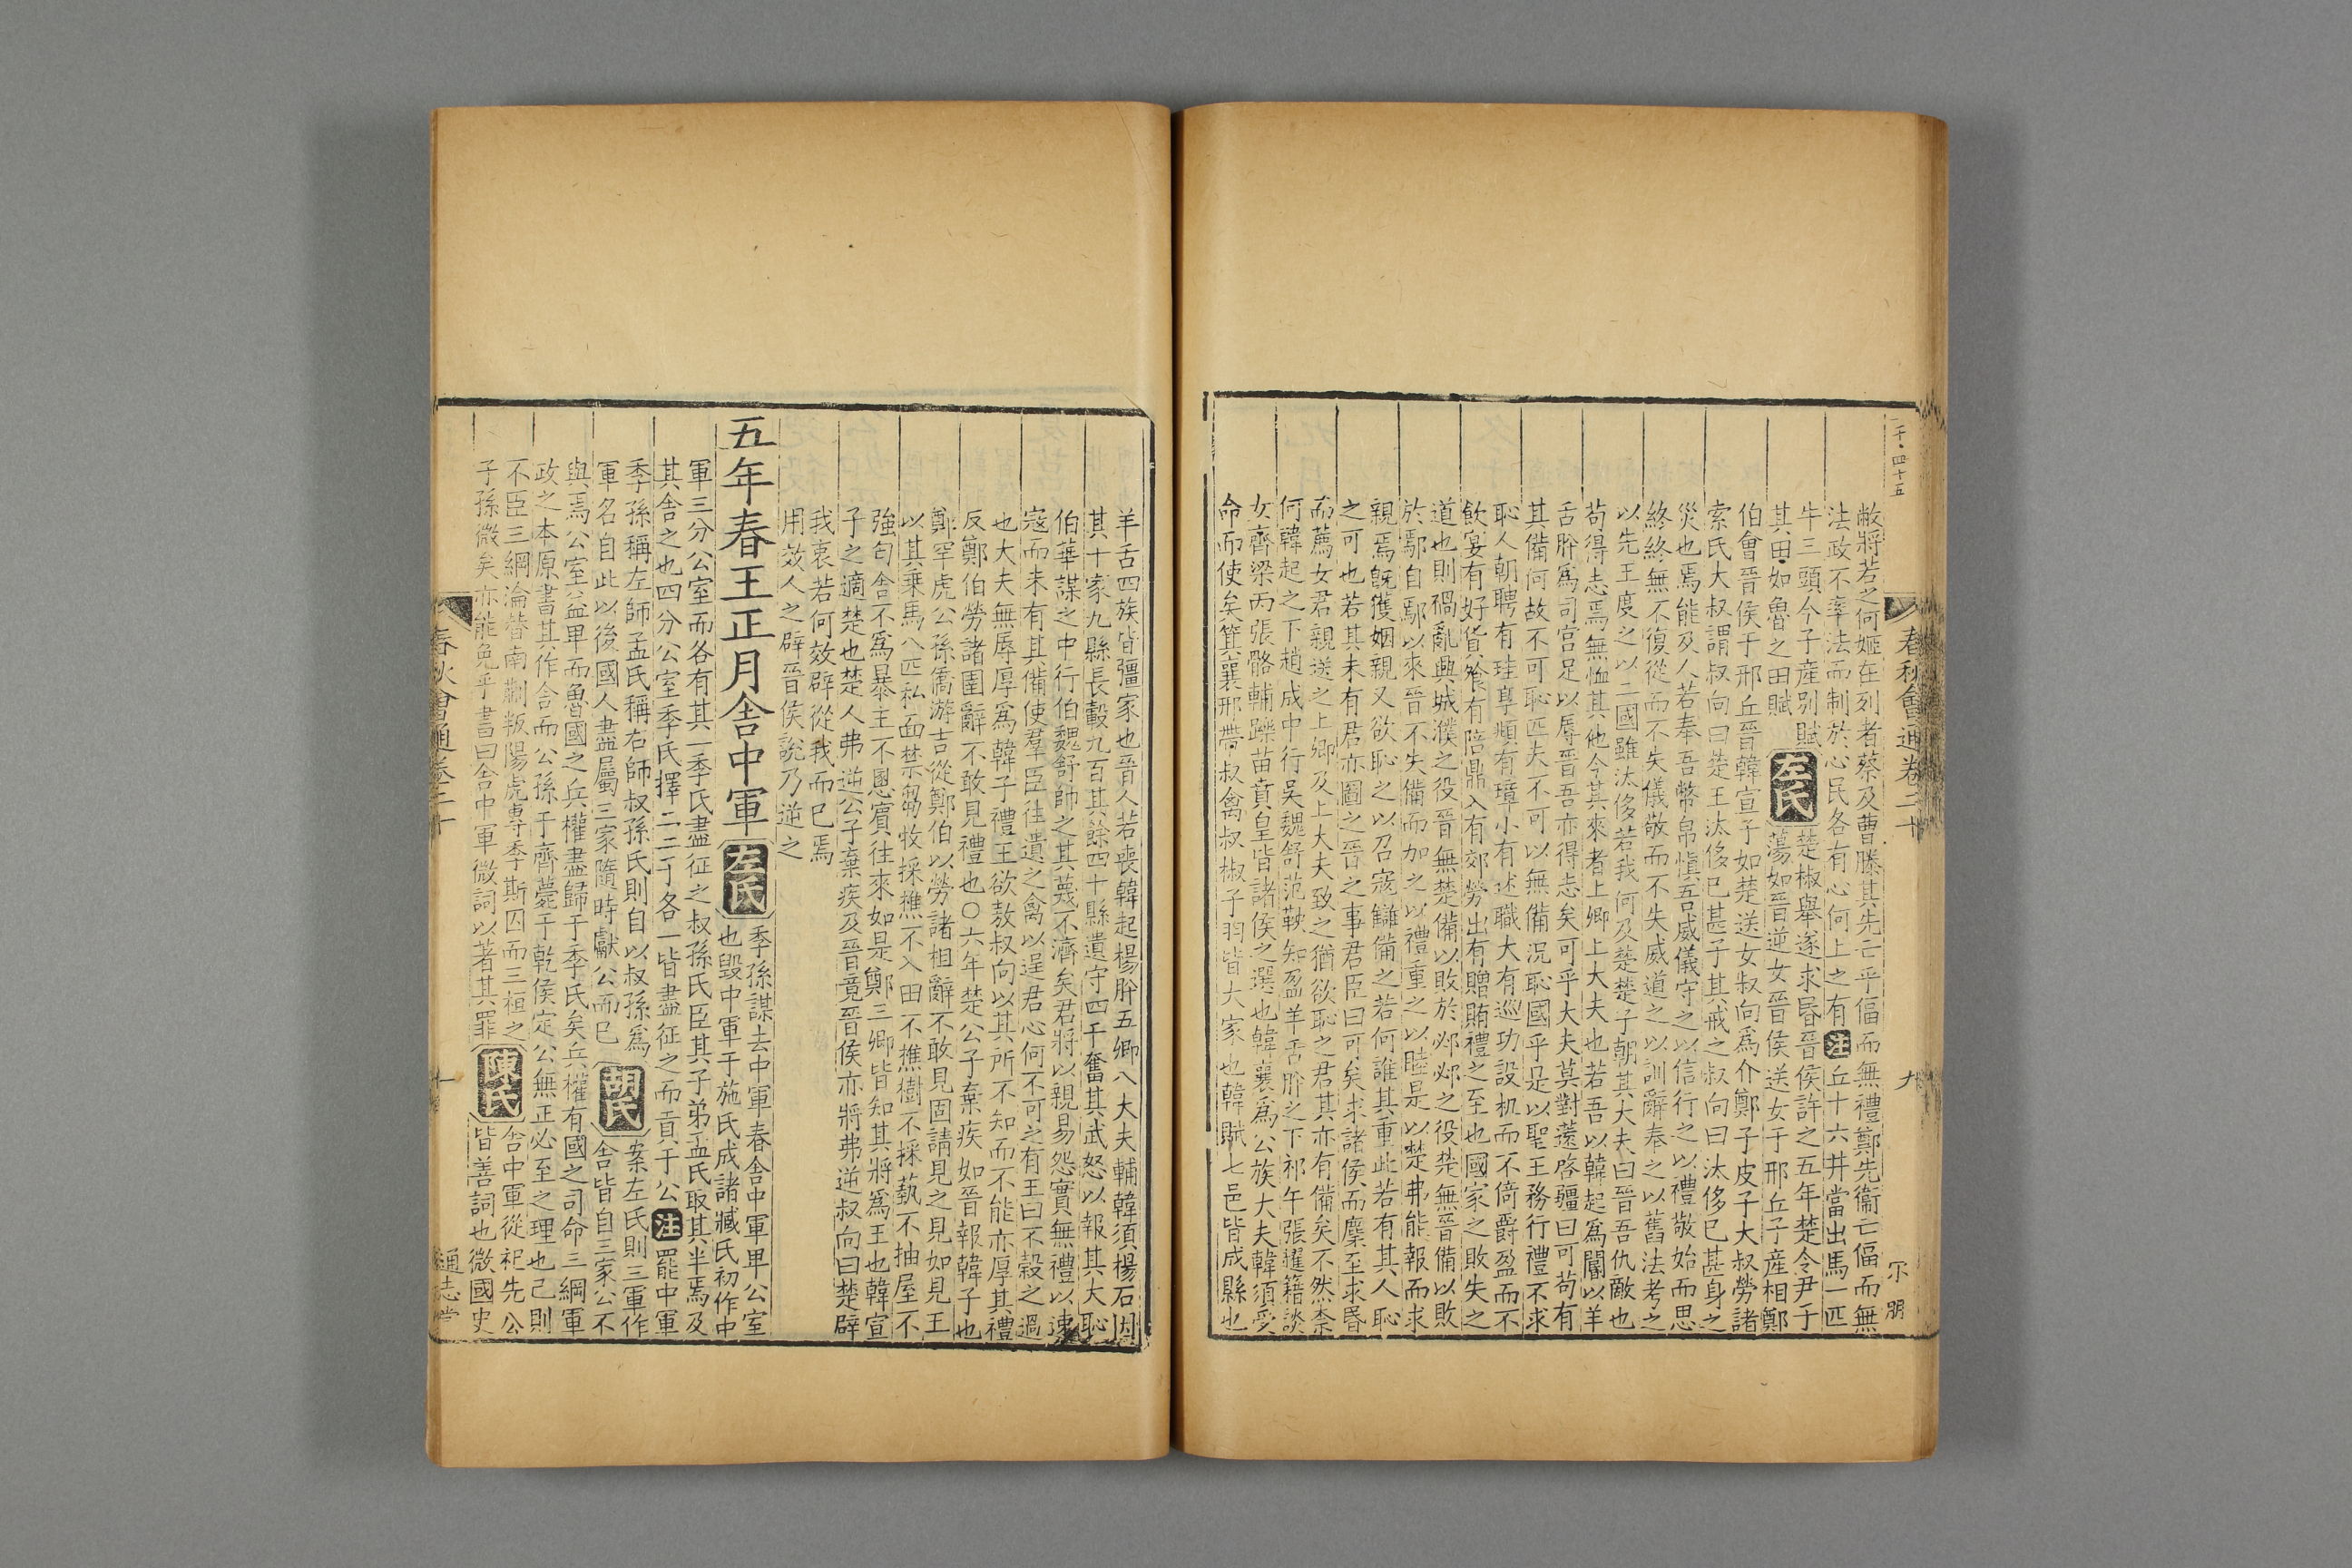 千四十五
春秋會通卷二十
九
尔朋
敝將若之何姬在列者蔡及曹滕其先亡乎偪而無禮鄭先衞亡偪而無
法政不率法而制於心民各有心何上之有注丘十六井當出馬一匹
牛三頭今子産别賦
其田如魯之田賦
左氏
楚椒舉遂求昏晉侯許之五年楚令尹子
蕩如晉逆女晉侯送女于邢丘子産相鄭
伯會晉侯于邢丘晉韓宣子如楚送女叔向爲介鄭子皮子大叔勞諸
索氏大叔謂叔向曰楚王汰侈已甚子其戒之叔向曰汰侈已甚身之
災也焉能及人若奉吾幣帛愼吾威儀守之以信行之以禮敬始而思
終終無不復從而不失儀敬而不失威道之以訓辭奉之以舊法考之
以先王度之以二國雖汰侈若我何及楚楚子朝其大夫曰晉吾仇敵也
苟得志焉無恤其他今其來者上卿上大夫也若吾以韓起爲閽以羊
舌肸爲司宫足以辱晉吾亦得志矣可乎大夫莫對薳啓疆曰可苟有
其備何故不可恥匹夫不可以無備况恥國乎是以聖王務行禮不求
恥人朝聘有珪享頫有璋小有述職大有巡功設机而不倚爵盈而不
飲宴有好貨飧有陪鼎入有郊勞出有贈賄禮之至也國家之敗失之
道也則禍亂興城濮之役晉無楚備以敗於邲邲之役楚無晉備以敗
於鄢自鄢以來晉不失備而加之以禮重之以睦是以楚弗能報而求
親焉旣獲姻親又欲恥之以召寇讎備之若何誰其重此若有其人恥
之可也若其未有君亦圖之晉之事君臣曰可矣求諸侯而麇至求昬
而薦女君親送之上卿及上大夫致之猶欲恥之君其亦有備矣不然柰
何韓起之下趙成中行吳魏舒范鞅知盈羊舌肸之下祁午張趯籍談
女齊梁丙張骼輔躒苗賁皇皆諸侯之選也韓襄爲公族大夫韓須受
命而使矣箕襄邢帶叔禽叔椒子羽皆大家也韓賦七邑皆成縣也
羊舌四族皆彊家也晉人若喪韓起楊肸五卿八大夫輔韓須楊石因
其十家九縣長轂九百其餘四十縣遺守四千奮其武怒以報其大恥
伯華謀之中行伯魏舒帥之其蔑不濟矣君將以親易怨實無禮以速
寇而未有其備使羣臣往遺之禽以逞君心何不可之有王曰不穀之過
也大夫無辱厚爲韓子禮王欲敖叔向以其所不知而不能亦厚其禮
反鄭伯勞諸圉辭不敢見禮也〇六年楚公子棄疾如晉報韓子也
鄭罕虎公孫僑游吉從鄭伯以勞諸柤辭不敢見固請見之見如見王
以其乗馬八匹私面禁芻牧採樵不入田不樵樹不採蓺不抽屋不
強匄舍不爲暴主不慁賔往來如是鄭三卿皆知其將爲王也韓宣
子之適楚也楚人弗逆公子棄疾及晉竟晉侯亦將弗逆叔向曰楚辟
我衷若何效辟從我而已焉
用效人之辟晉侯說乃逆之
五年春王正月舍中軍
左氏
季孫謀去中軍春舍中軍卑公室
也毀中軍于施氏成諸臧氏初作中
軍三分公室而各有其一季氏盡征之叔孫氏臣其子弟孟氏取其半焉及
其舍之也四分公室季氏擇二二子各一皆盡征之而貢于公注罷中軍
季孫稱左師孟氏稱右師叔孫氏則自以叔孫爲
軍名自此以後國人盡屬三家隨時獻公而已
胡氏
案左氏則三軍作
舍皆自三家公不
與焉公室益卑而魯國之兵權盡歸于季氏矣兵權有國之司命三綱軍
政之本原書其作舍而公孫于齊薨于乾侯定公無正必至之理也己則
不臣三綱淪替南蒯叛陽虎專季斯囚而三桓之
子孫微矣亦能免乎書曰舍中軍微詞以著其罪
陳氏
舍中軍從祀先公
皆善詞也微國史
春秋會通卷二十
十
通志堂